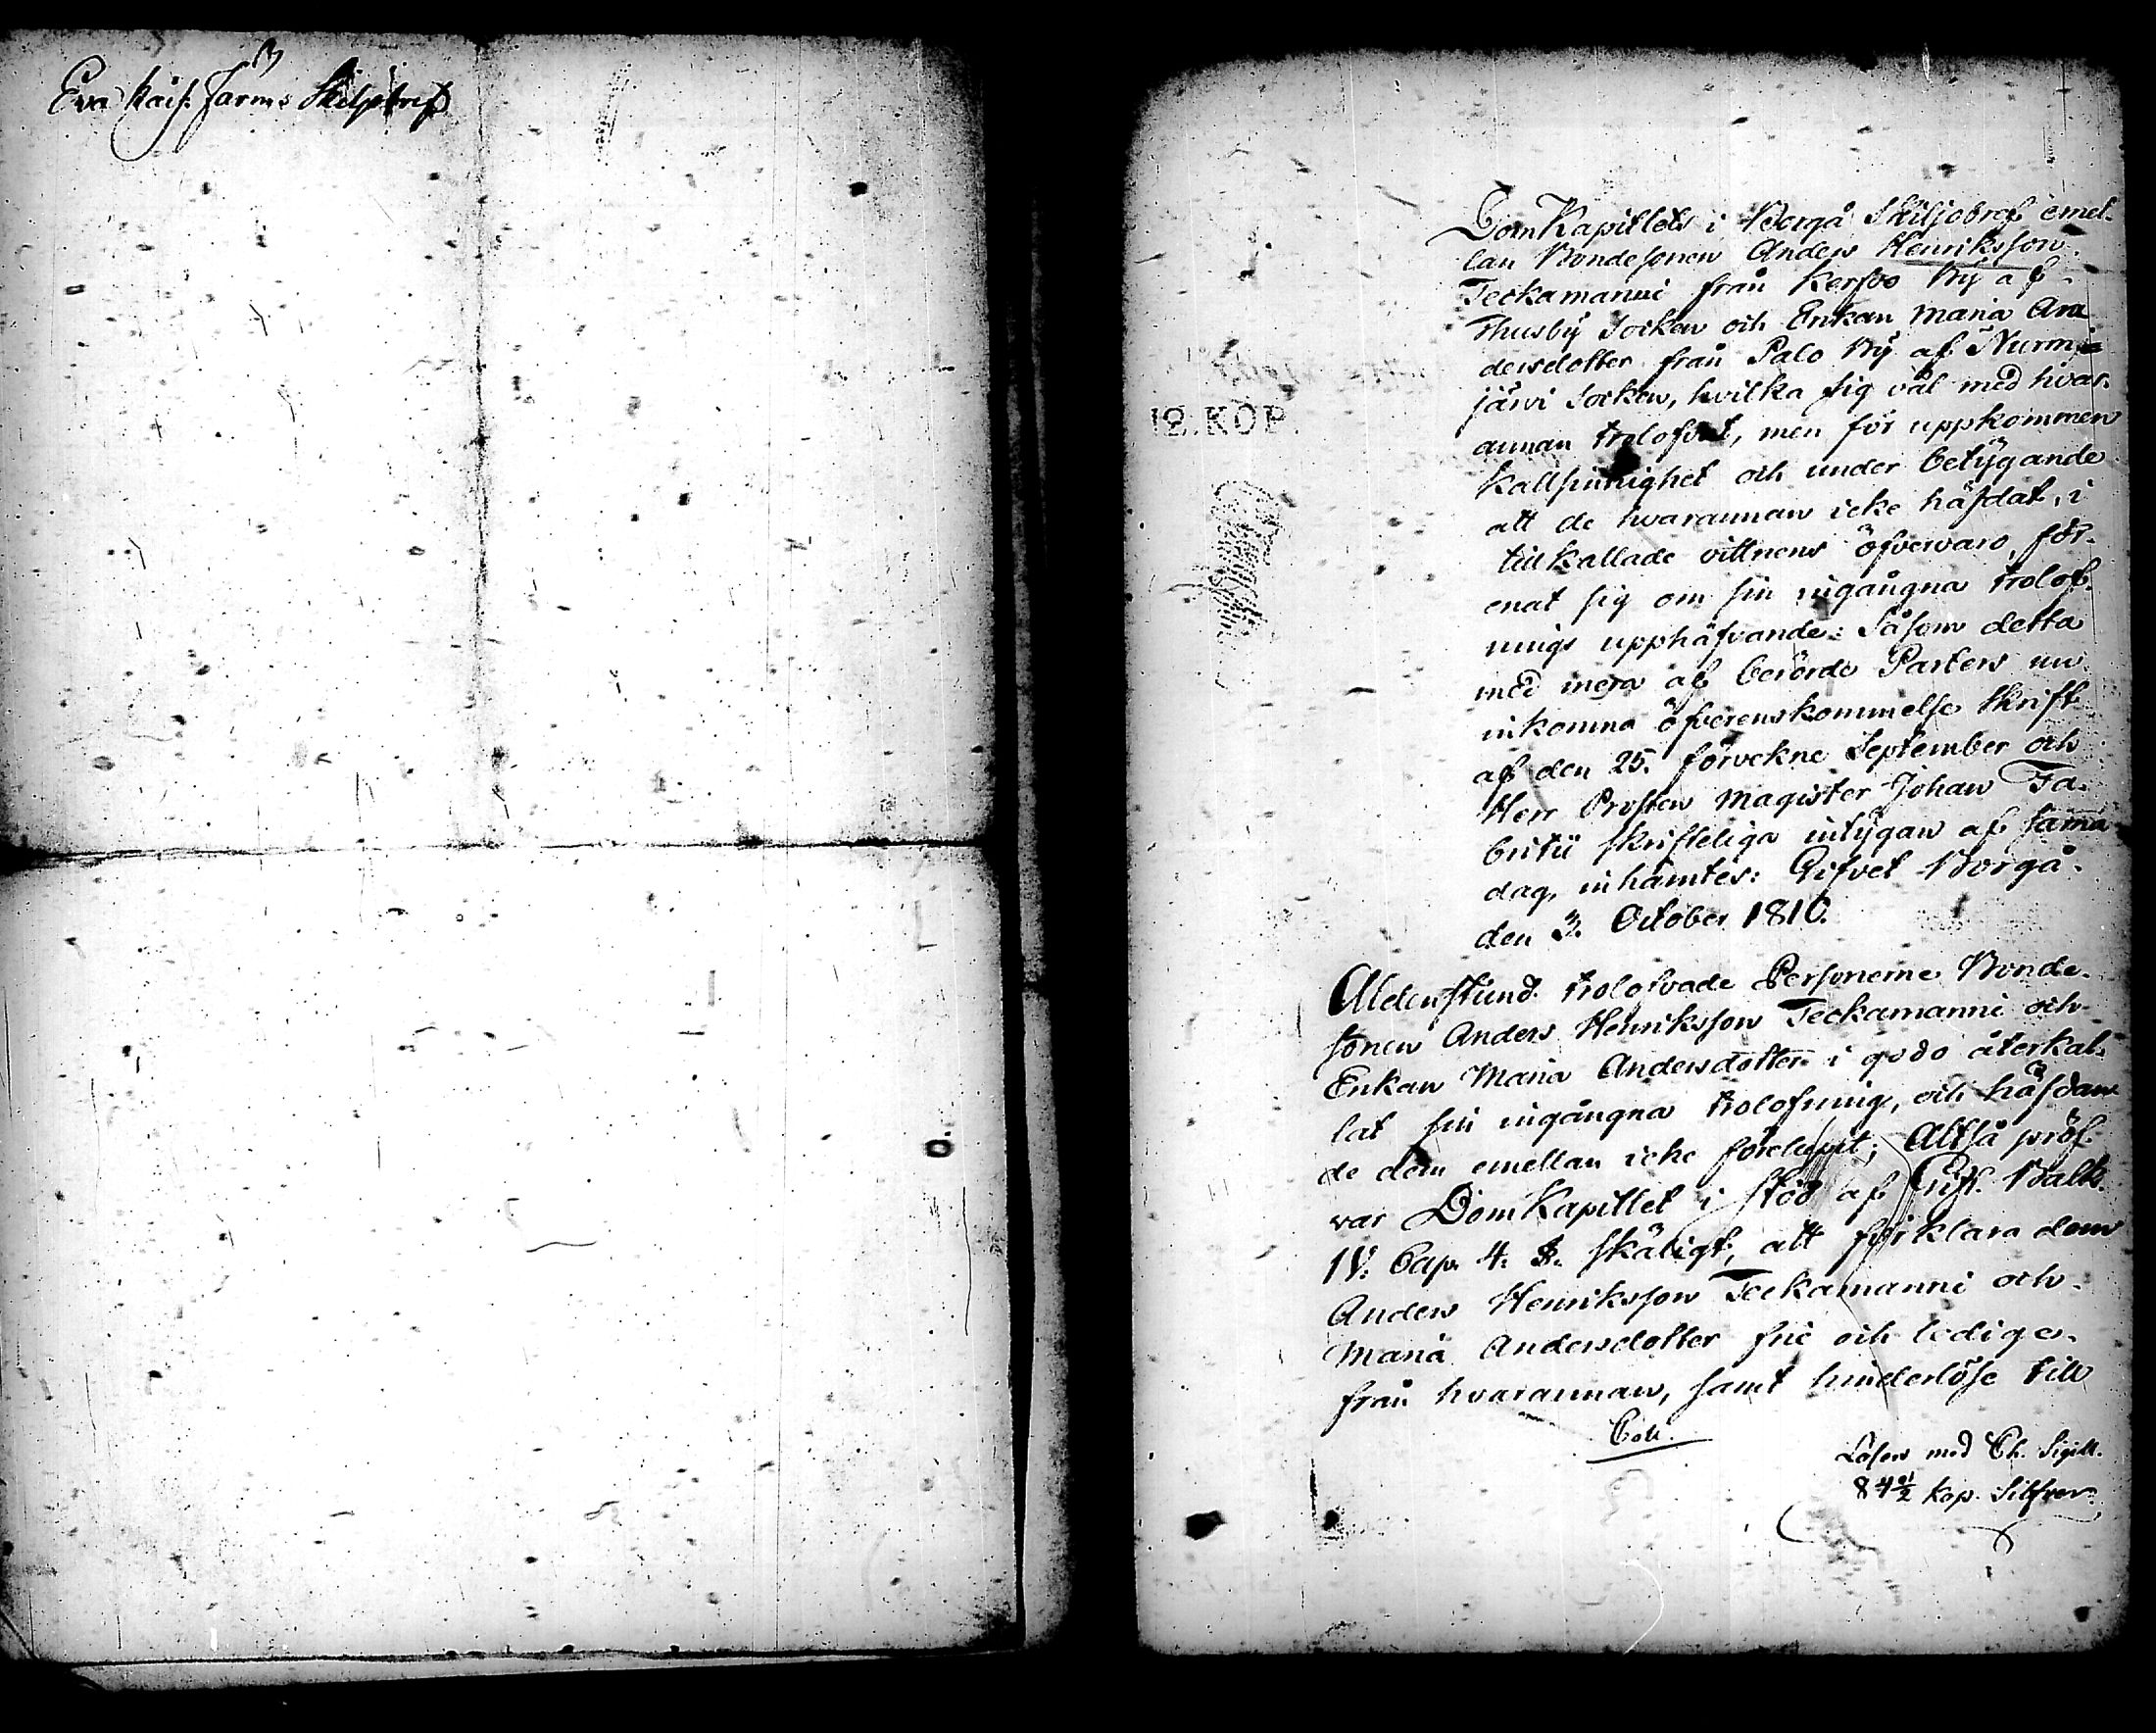 Eva Kais. Jarms Skiljobref
12. KOP.
DomKapitlets i Borgå Skiljobref emel-
lan Bondesonen Anders Henriksson
Teckamanni från Kersko By af
Thusby Socken och Enkan Maria An-
dersdotter från Palo By af Nurmi-
järvi Socken, hvilka sig väl med hvar-
annan trolofvat, men för uppkommen
kallsinnighet och under betygande
att de hvarannan icke häfdat, i
tillkallade vittnens öfvervaro, för-
enat sig om sin ingångna trolof-
nings upphäfvande: Såsom detta
med mera af berörde Parters nu
inkomna öfverenskommelse Skrift
af den 25. förvekne September och
Herr Prosten Magister Johan Fa-
britii skrifteliga intygan af samma
dag, inhämtes: Gifvet Borgå
den 3. October 1810.
Aldenstund trolofvade Personerne Bonde-
sonen Anders Henriksson Teckamanni och
Enkan Maria Andersdotter i godo återkal-
lat sin ingångna trolofning, och häfdan-
de dem emellan icke förelupit; Altså pröf-
var DomKapitlet i stöd af Gift. Balk.
IV. Cap. 4. §. skäligt, att förklara dem
Anders Henriksson Teckamanni och
Maria Andersdotter frie och ledige
från hvarannan, samt hinderlöse till
Coll.
Lösen med Ch. Sigill.
84½ kop. Silfver